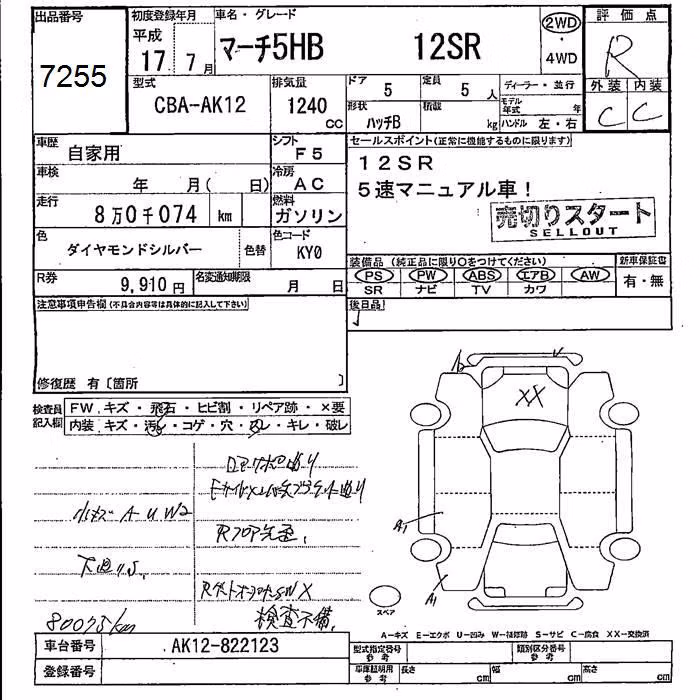 出品番号
7255
初度登録年月
平成
17年 7月
車名・グレード
マーチ5HB 12SR
2WD
・
4WD
評価点
R
型式
CBA-AK12
排気量
1240
CC
ドア
5
定員
5 人
ディーラー・並行
外装 内装
C C
形状
ハッチB
積載
kg
モデル年式 年
ハンドル 左・右
車歴
自家用
シフト
F5
セールスポイント(正常に機能するものに限ります)
12SR
5速マニュアル車!
車検
年 月( 日)
冷房
AC
走行
8万0千074 km
燃料
ガソリン
売切りスタート
SELLOUT
色
ダイヤモンドシルバー
色替
色コード
KY0
装備品(純正品に限り○をつけてください)
新車保証書
PS PW ABS エアB AW
SR ナビ TV カワ
有・無
R券
9,910円
名変通知期限
月 日
注意事項申告欄(不具合内容等は具体的に記入して下さい)
後日品
修復歴 有〔箇所 〕
検査員記入欄
FW.キズ・飛石・ヒビ割・リペア跡・×要
内装.キズ・汚れ・コゲ・穴・スレ・キレ・破レ
XX
小キズ A U W2
A1
A1
スペア
80075km
検査不備.
A-キズ E-エクボ U-凹み W-補修跡 S-サビ C-腐食 XX-交換済
車台番号
AK12-822123
型式指定番号
参考
類別区分番号
参考
登録番号
車庫証明用
参考
長さ cm
幅 cm
高さ cm